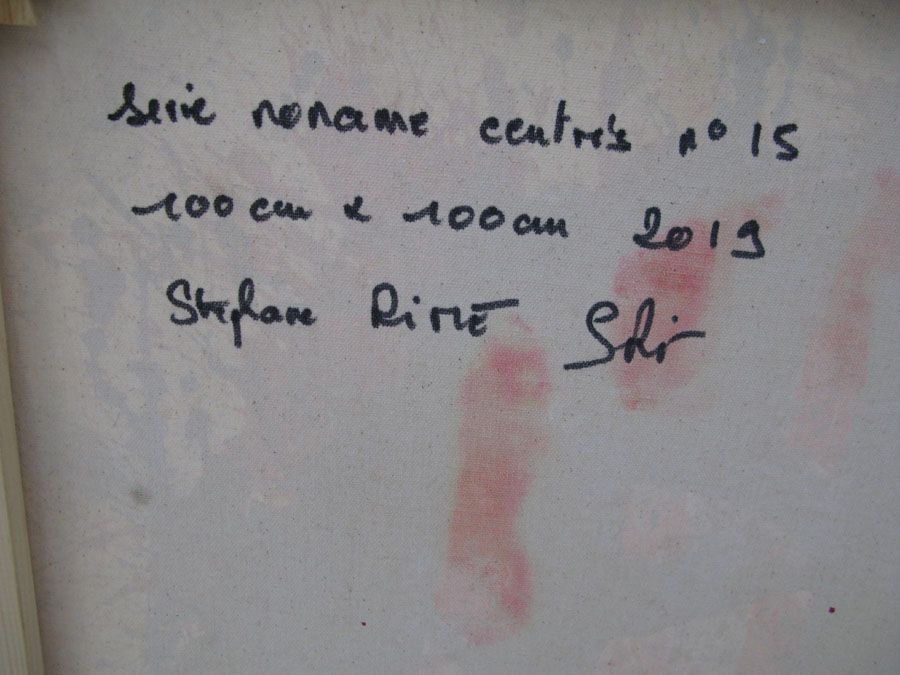 serie noname centrés n° 15
100 cm x 100 cm 2019
Stephane RIMÉ SRi